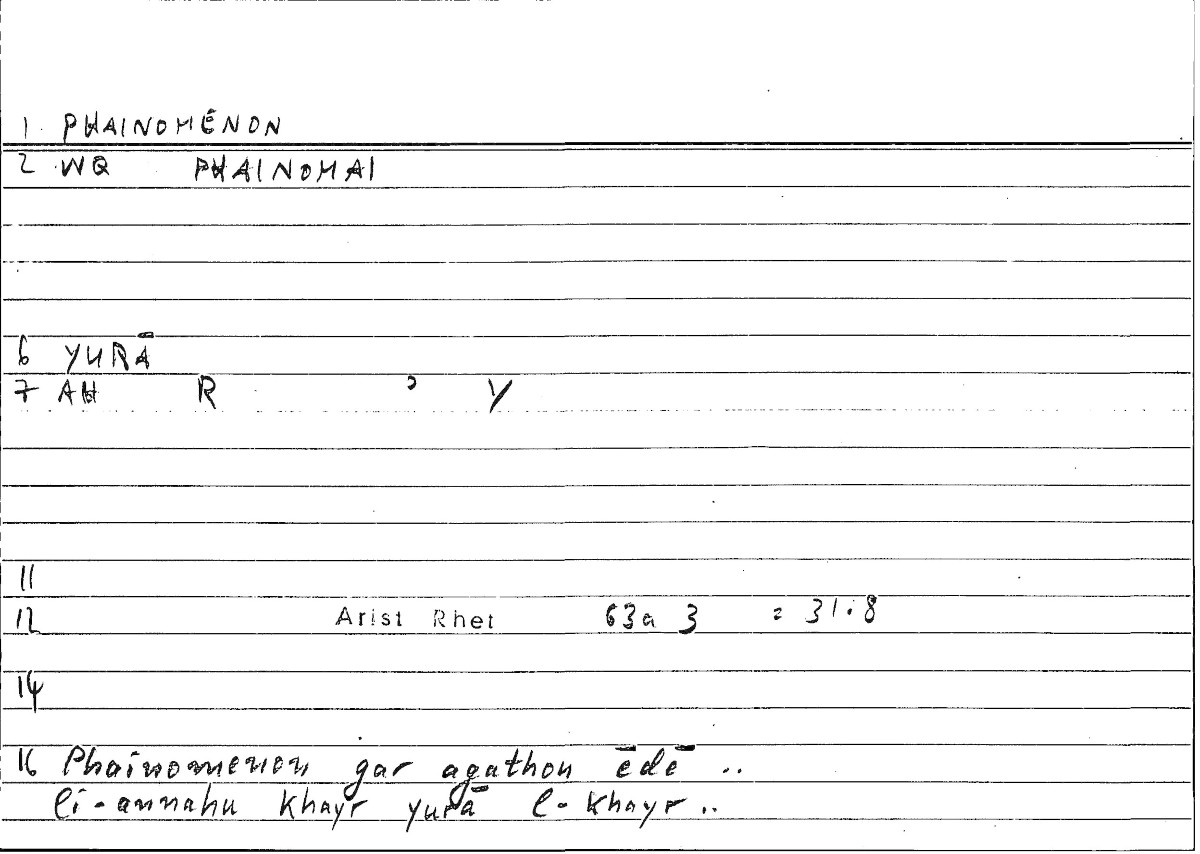 1. PHAINOMÉNON
2 WQ PHAINOMAI
6 YURĀ
7 AH R ʾ Y
11
12 Arist Rhet 63a 3 = 31.8
14
16 Phainomenon gar agathon ēdē ..
li-annahu khayr yurā l-khayr ..